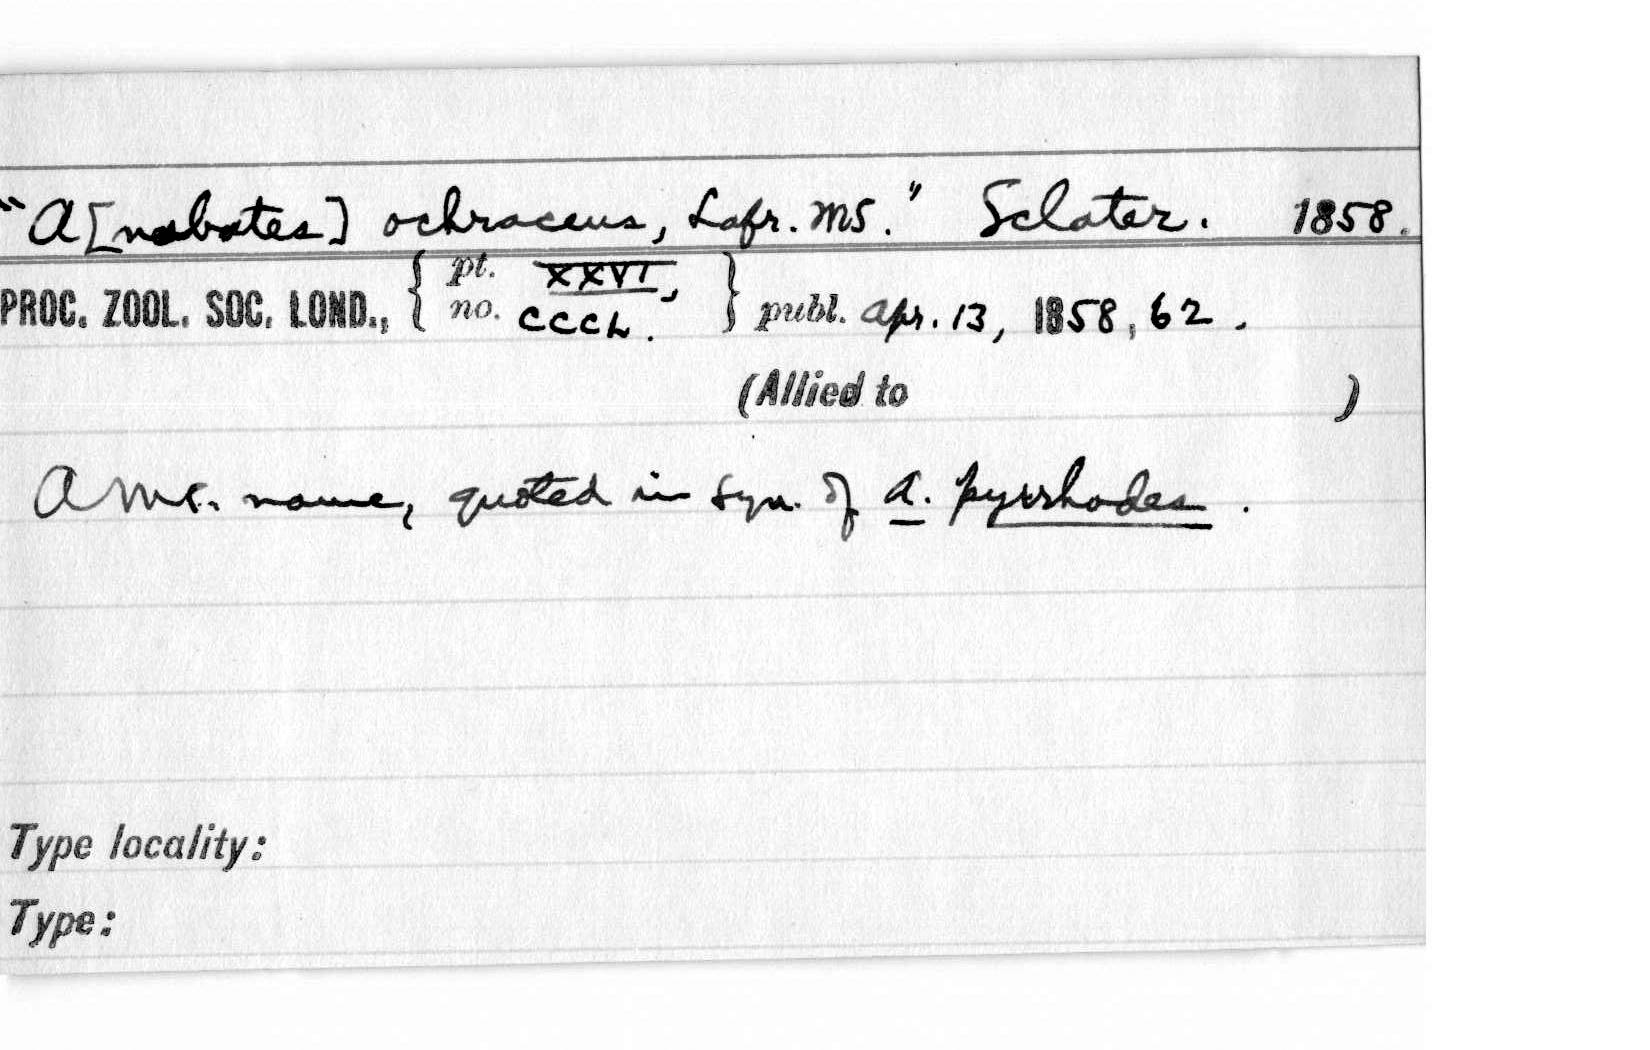 "A[nabates] ochraceus, Lafr. MS." Sclater. 1858.
PROC. ZOOL. SOC. LOND., { pt. XXVI, no. CCCL. } publ. Apr. 13, 1858, 62.
(Allied to )
A MS. name, quoted in syn. of A. pyrrhodes.
Type locality:
Type: